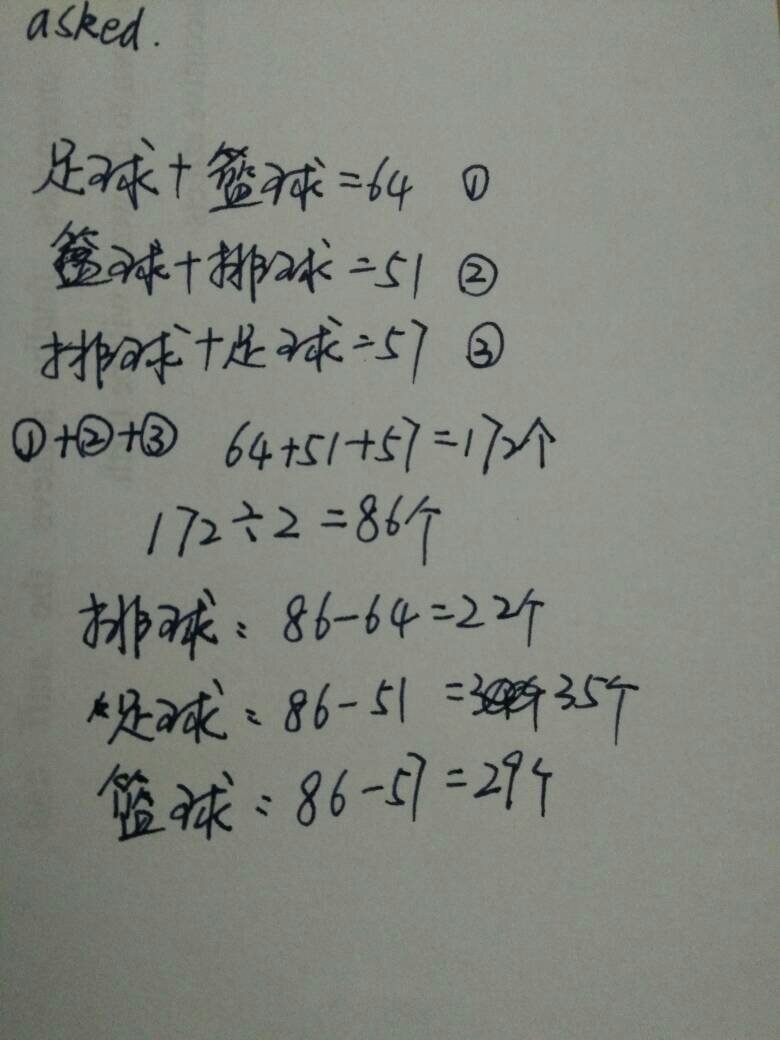 asked.
足球+篮球=64 ①
篮球+排球=51 ②
排球+足球=57 ③
①+②+③ 64+51+57=172个
172÷2=86个
排球:86-64=22个
足球:86-51=35个
篮球:86-57=29个